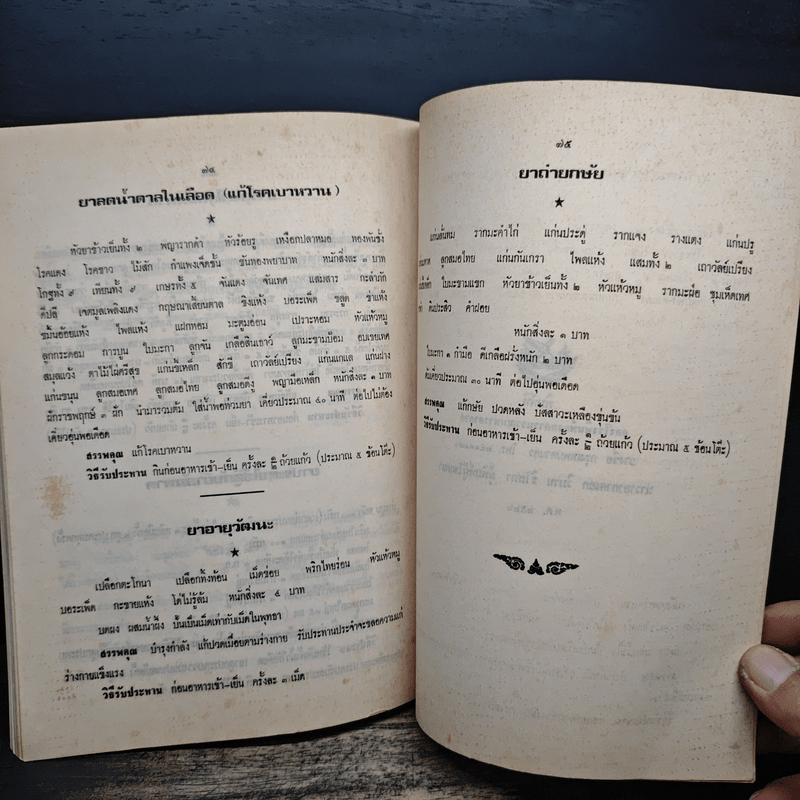 ๗๔
ยาลดน้ำตาลในเลือด (แก้โรคเบาหวาน)
หัวยาข้าวเย็นทั้ง ๒ พญารากดำ หัวร้อยรู เหงือกปลาหมอ ทองพันชั่ง
โรคแดง โรคขาว ไม้สัก กำแพงเจ็ดชั้น ขันทองพยาบาท หนักสิ่งละ ๓ บาท
โกฐทั้ง ๙ เทียนทั้ง ๙ เกษรทั้ง ๕ จันแดง จันเทศ แสมสาร กะลำภัก
ดีปลี เจตมูลเพลิงแดง กฤษณาเสี้ยนตาล ขิงแห้ง บอระเพ็ด ชลูด ข่าแห้ง
ขมิ้นอ้อยแห้ง ไพลแห้ง แฝกหอม มะตูมอ่อน เปราะหอม หัวแห้วหมู
ลูกกระดอม การบูน ใบมะกา ลูกจัน เกลือสินเธาว์ ลูกมะขามป้อม อบเชยเทศ
สมุลแว้ง ตาไม้ไผ่ศรีสุข แก่นขี้เหล็ก สักขี เถาวัลย์เปรียง แก่นแกแล แก่นฝาง
แก่นขนุน ลูกสมอเทศ ลูกสมอไทย ลูกสมอดีงู พญามือเหล็ก หนักสิ่งละ ๑ บาท
ฝักราชพฤกษ์ ๓ ฝัก นำมารวมต้ม ใส่น้ำพอท่วมยา เคี่ยวประมาณ ๔๐ นาที ต่อไปไม่ต้อง
เคี่ยวอุ่นพอเดือด
สรรพคุณ แก้โรคเบาหวาน
วิธีรับประทาน กินก่อนอาหารเช้า–เย็น ครั้งละ ถ้วยแก้ว (ประมาณ ๕ ช้อนโต๊ะ)
ยาอายุวัฒนะ
เปลือกตะโกนา เปลือกทิ้งท้อน เม็ดข่อย พริกไทยร่อน หัวแห้วหมู
บอระเพ็ด กะชายแห้ง โด่ไม่รู้ล้ม หนักสิ่งละ ๔ บาท
บดผง ผสมน้ำผึ้ง ปั้นเป็นเม็ดเท่ากับเม็ดในพุทธา
สรรพคุณ บำรุงกำลัง แก้ปวดเมื่อยตามร่างกาย รับประทานประจำจะชลอความแก่
ร่างกายแข็งแรง
วิธีรับประทาน ก่อนอาหารเช้า–เย็น ครั้งละ ๓ เม็ด
๗๕
ยาถ่ายกษัย
แก่นลั่นทม รากมะดำไก่ แก่นประดู่ รากแจง รางแดง แก่นปรู
ลูกสมอไทย แก่นกันเกรา ไพลแห้ง แสมทั้ง ๒ เถาวัลย์เปรียง
ใบมะขามแขก หัวยาข้าวเย็นทั้ง ๒ หัวแห้วหมู รากมะเฝือ ชุมเห็ดเทศ
ดินประสิว คำฝอย
หนักสิ่งละ ๑ บาท
ใบมะกา ๑ กำมือ ดีเกลือฝรั่งหนัก ๒ บาท
ต้มเคี่ยวประมาณ ๓๐ นาที ต่อไปอุ่นพอเดือด
สรรพคุณ แก้กษัย ปวดหลัง ปัสสาวะเหลืองขุ่นข้น
วิธีรับประทาน ก่อนอาหารเช้า–เย็น ครั้งละ ถ้วยแก้ว (ประมาณ ๕ ช้อนโต๊ะ)